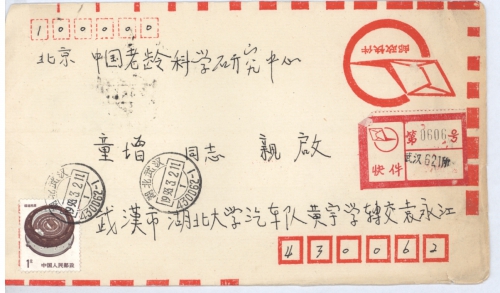 100000
北京 中国老龄科学研究中心
邮政快件
第0606号
快件
武汉62
童增 同志 親啟
湖北武汉
1993.3.2.11
430062-1
武漢市湖北大学汽车队黄宇学转交袁永江
430062
中国人民邮政